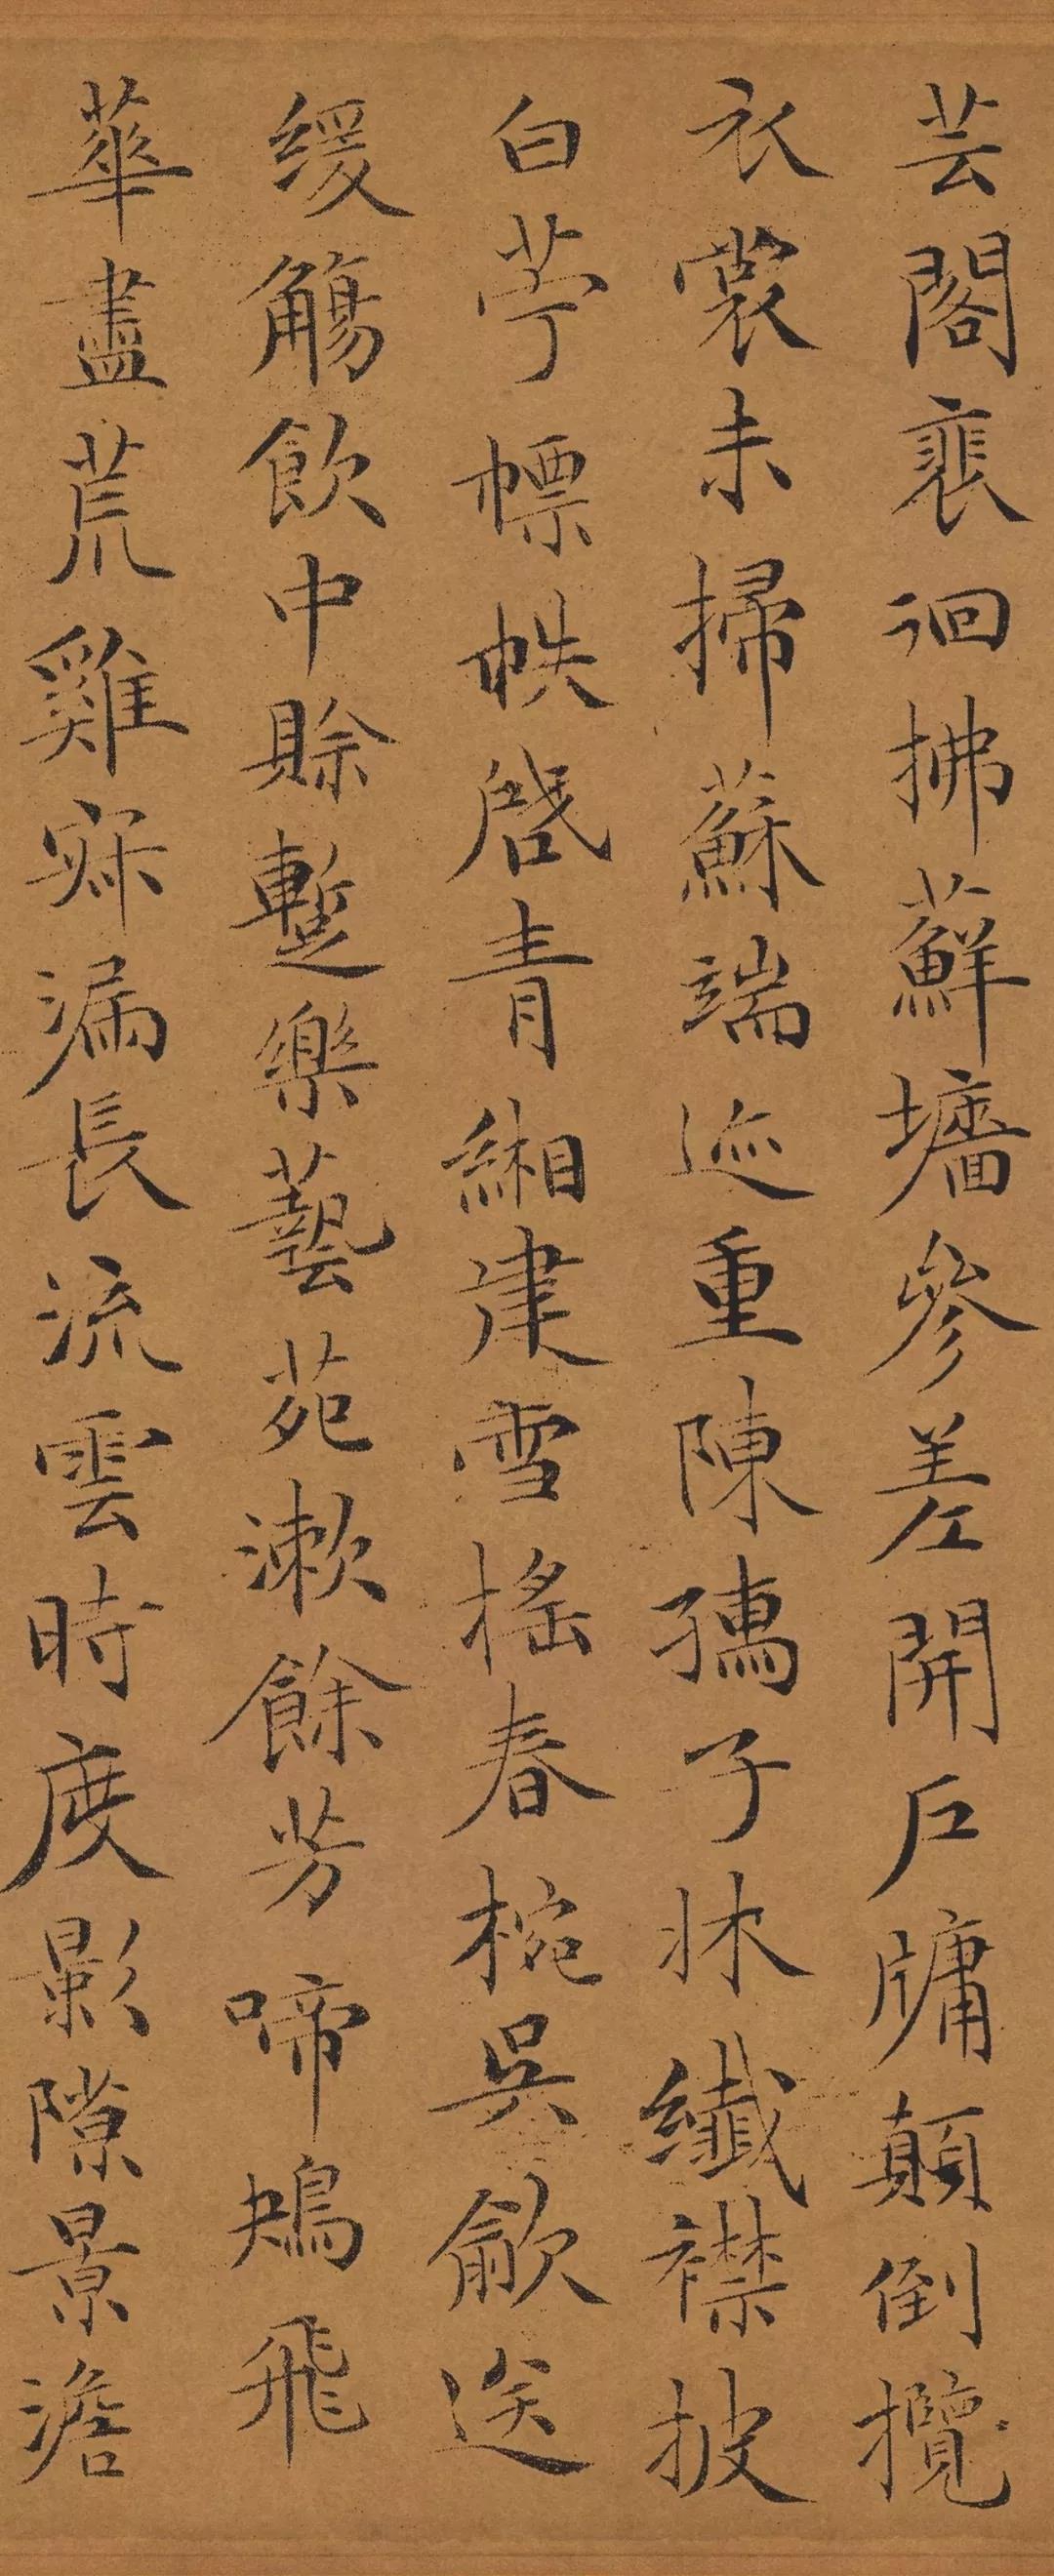 芸閣裴徊拂蘚墻參差開戶牗顛倒攬
衣裳未掃蘇端迹重陳孺子牀纖襟披
白苧幖帙啓青緗建雪榣春椀吳歈送
緩觴飲中賒蹔樂藝苑漱餘芳啼鴂飛
華盡荒雞寐漏長流雲時度影隙景澹